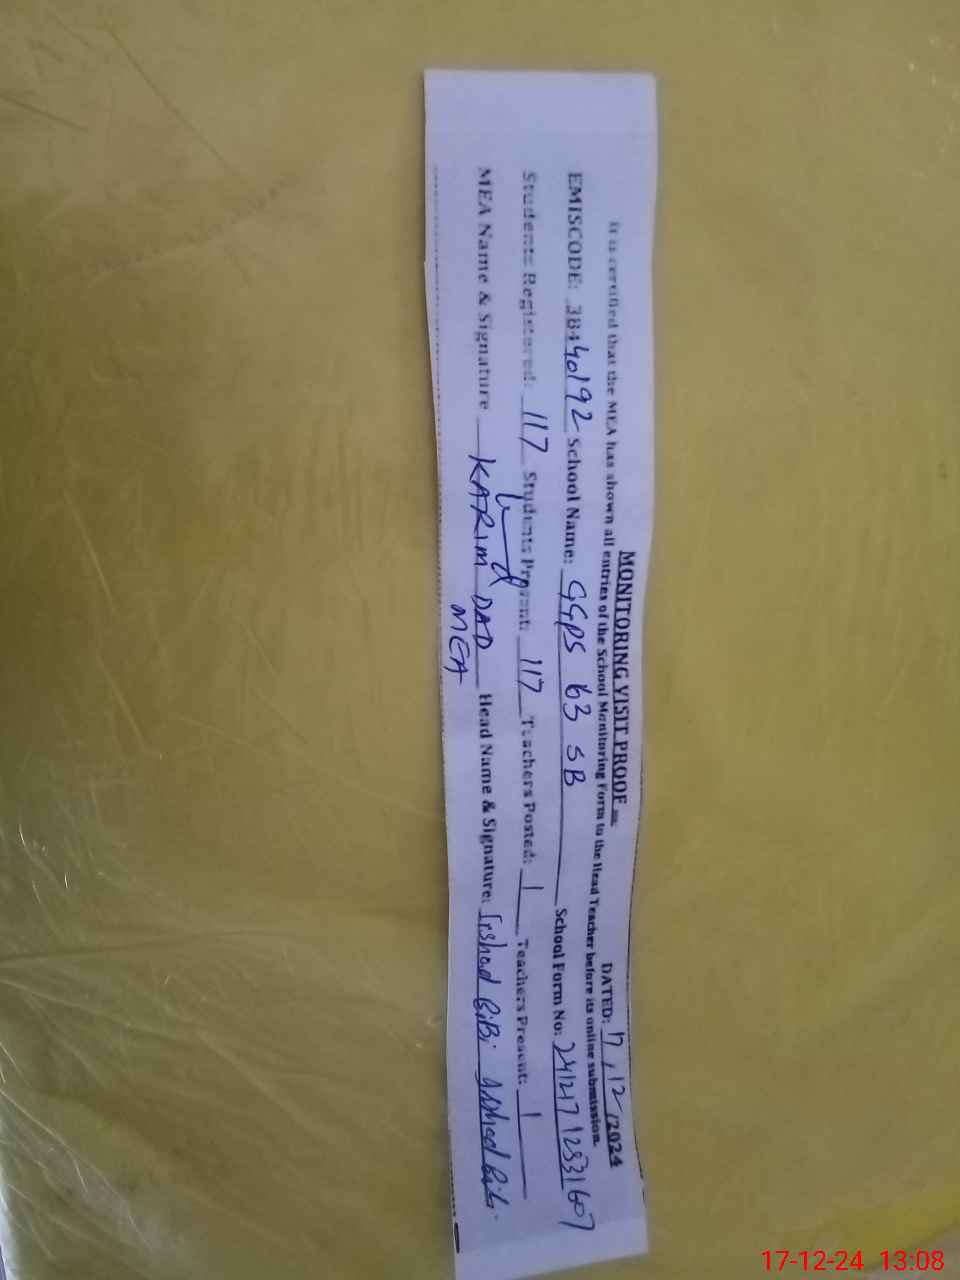 MONITORING VISIT PROOF
DATED: 17/12/2024
It is certified that the MEA has shown all entries of the School Monitoring Form to the Head Teacher before its online submission.
EMISCODE: 38440192 School Name: GGPS 63 SB School Form No: 24121712531607
Students Registered: 117 Students Present: 117 Teachers Posted: 1 Teachers Present: 1
MEA Name & Signature KARIM DAD Head Name & Signature: Irshad BiBi Irshad BiBi
MEA
17-12-24 13:08